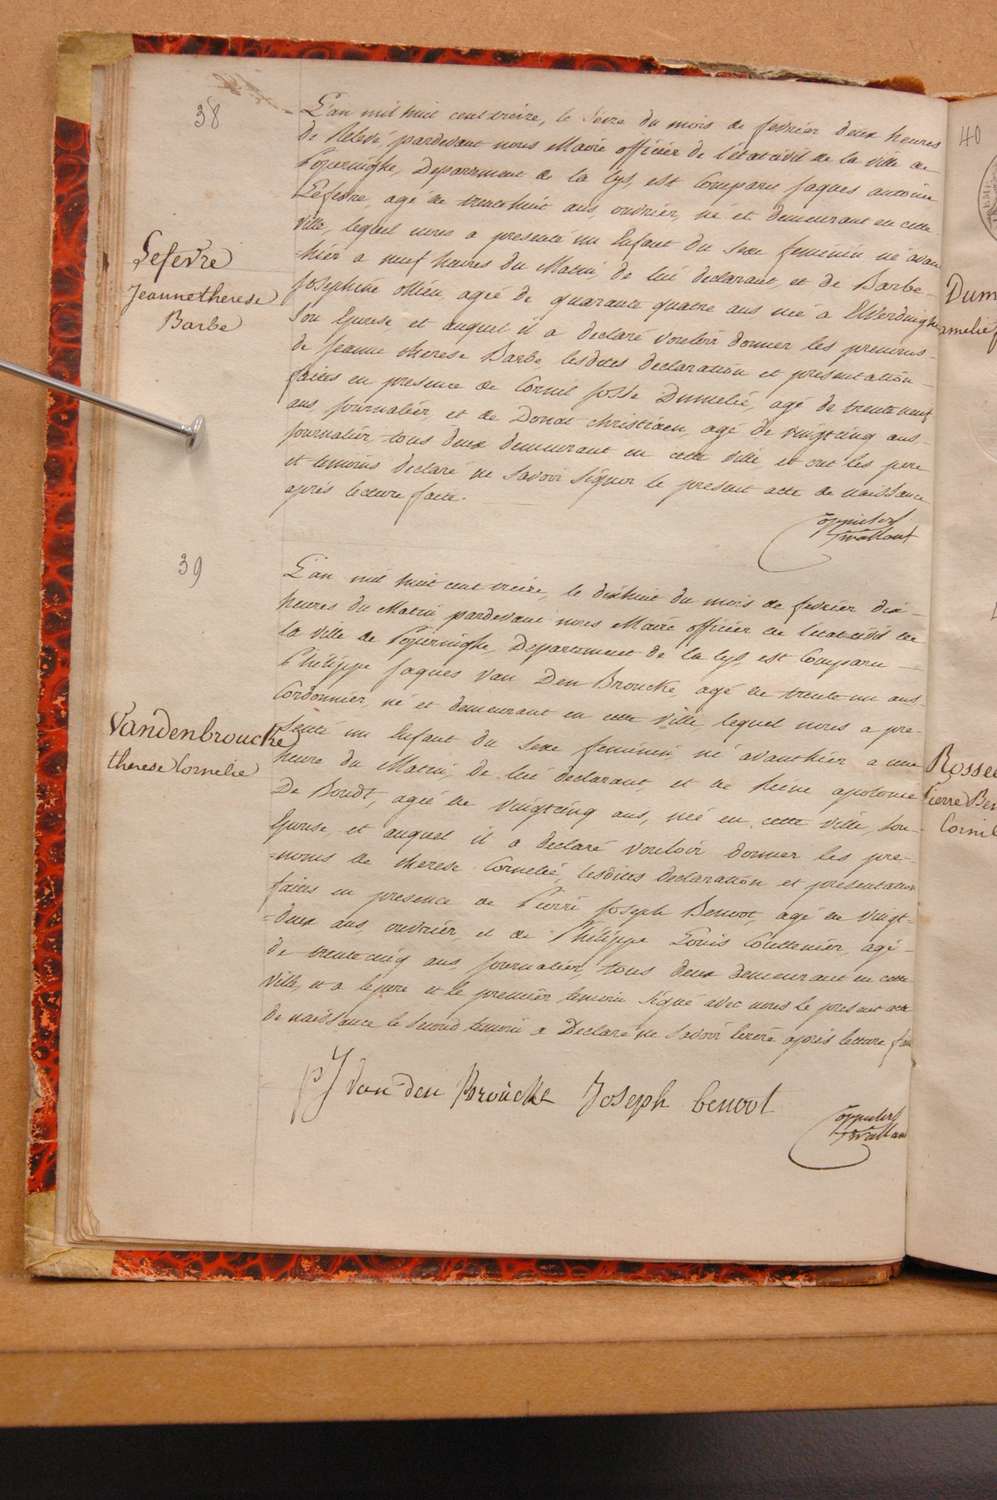 38
L'an mil huit cent treize, le seize du mois de fevrier deux heures
de Relevé, pardevant nous Maire officier de l'état civil de la ville de
Poperinghe, Departement de la Lys, est Comparu Jaques antoine
Lefevre, agé de trente huit ans, ouvrier, né et demeurant en cette
ville, lequel nous a presenté un Enfant du sexe feminin né avant
hier a neuf heures du Matin, de lui declarant, et de Barbe
Josephine agée de quarante quatre ans née à Elverdinghe
son Epouse et auquel il a declaré vouloir donner les prenoms
de Jeanne therese Barbe, lesdites declaration et presentation
faites en presence de Cornil Josse Dumelie, agé de trente neuf
ans, journalier, et de Donat christiaen, agé de vingtcinq ans
journalier, tous deux demeurant en cette ville et ont les pere
et temoins declaré ne savoir signer le present acte de naissance
après lecture faite.
Lefevre
Jeanne therese
Barbe
39
L'an mil huit cent treize, le dixhuit du mois de fevrier dix
heures du Matin, pardevant nous Maire officier de l'état civil de
la ville de Poperinghe, Departement de la Lys, est Comparu
Philippe Jaques Van Den Broucke, agé de trente un ans
Cordonnier, né et demeurant en cette ville, lequel nous a pre-
senté un Enfant du sexe feminin, né avanthier a une
heure du Matin, de lui declarant, et de Reine apolonie
De Boudt, agée de vingtcinq ans, née en cette ville, son
Epouse, et auquel il a declaré vouloir donner les pre-
=noms de therese Cornelie, lesdites declaration et presentation
faites en presence de Pierre Joseph Benoot, agé de vingt-
=deux ans, ouvrier, et de Philippe Louis Couttenier, agé
de trentecinq ans, journalier, tous deux demeurant en cette
ville, et a le pere et le premier temoin signé avec nous le present acte
de naissance le second temoin a Declaré ne savoir écrire après lecture
Vandenbroucke
therese Cornelie
pJ van den Broucke Joseph benoot
40
Dum
amelie
Rosse
Pierre Ben
Cornil